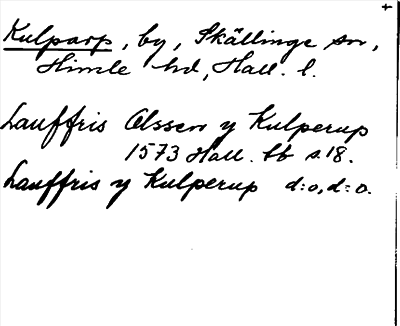 Kulparp, by, Skällinge sn,
Himle hd, Hall. l.
Lauffris Olssen y Kulperup
1573 Hall. tb s. 18.
Lauffris y Kulperup d:o, d:o.